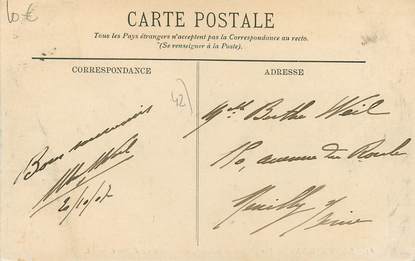 10 €
CARTE POSTALE
Tous les Pays étrangers n'acceptent pas la Correspondance au recto.
(Se renseigner à la Poste).
CORRESPONDANCE
ADRESSE
42)
Bons souvenirs
20/10/07
Melle Berthe Weil
150, avenue du Roule
Neuilly s/Seine